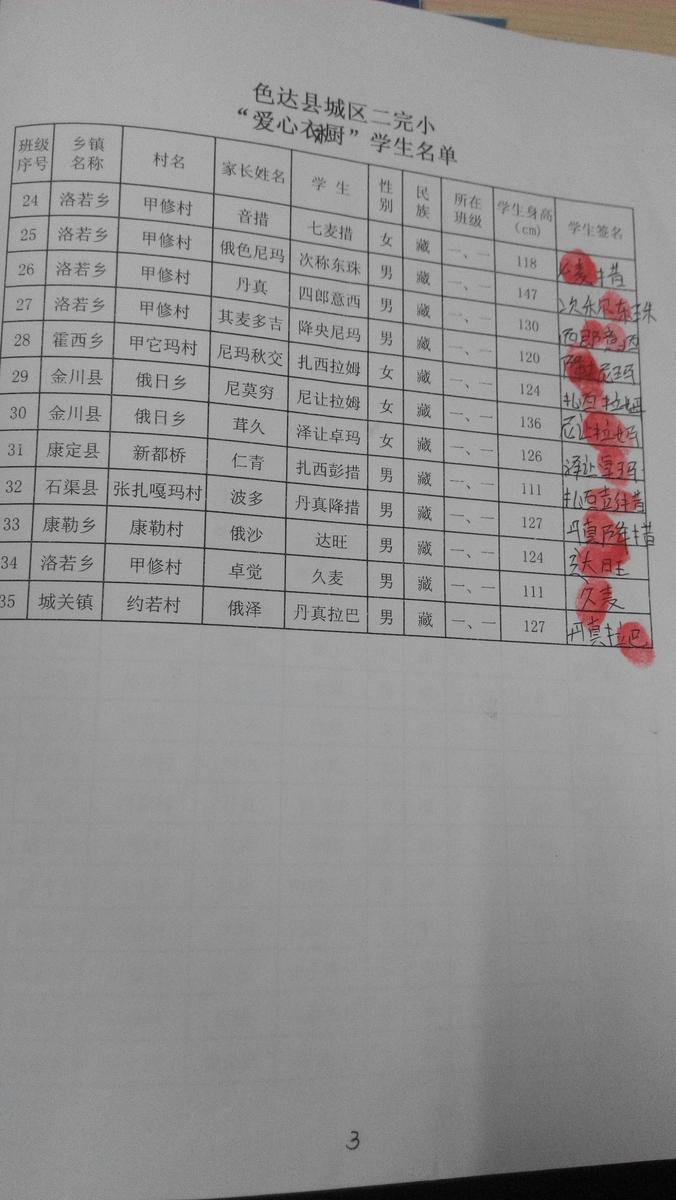 色达县城区二完小
“爱心衣厨”学生名单
班级序号 乡镇名称 村名 家长姓名 学 生 性别 民族 所在班级 学生身高（cm） 学生签名
24 洛若乡 甲修村 音措 七麦措 女 藏 一、一 118 七麦措
25 洛若乡 甲修村 俄色尼玛 次称东珠 男 藏 一、一 147 次称东珠
26 洛若乡 甲修村 丹真 四郎意西 男 藏 一、一 130 四郎意西
27 洛若乡 甲修村 其麦多吉 降央尼玛 男 藏 一、一 120 降央尼玛
28 霍西乡 甲它玛村 尼玛秋交 扎西拉姆 女 藏 一、一 124 扎西拉姆
29 金川县 俄日乡 尼莫穷 尼让拉姆 女 藏 一、一 136 尼让拉姆
30 金川县 俄日乡 茸久 泽让卓玛 女 藏 一、一 126 泽让卓玛
31 康定县 新都桥 仁青 扎西彭措 男 藏 一、一 111
32 石渠县 张扎嘎玛村 波多 丹真降措 男 藏 一、一 127 丹真降措
33 康勒乡 康勒村 俄沙 达旺 男 藏 一、一 124 达旺
34 洛若乡 甲修村 卓觉 久麦 男 藏 一、一 111 久麦
35 城关镇 约若村 俄泽 丹真拉巴 男 藏 一、一 127 丹真拉巴
3